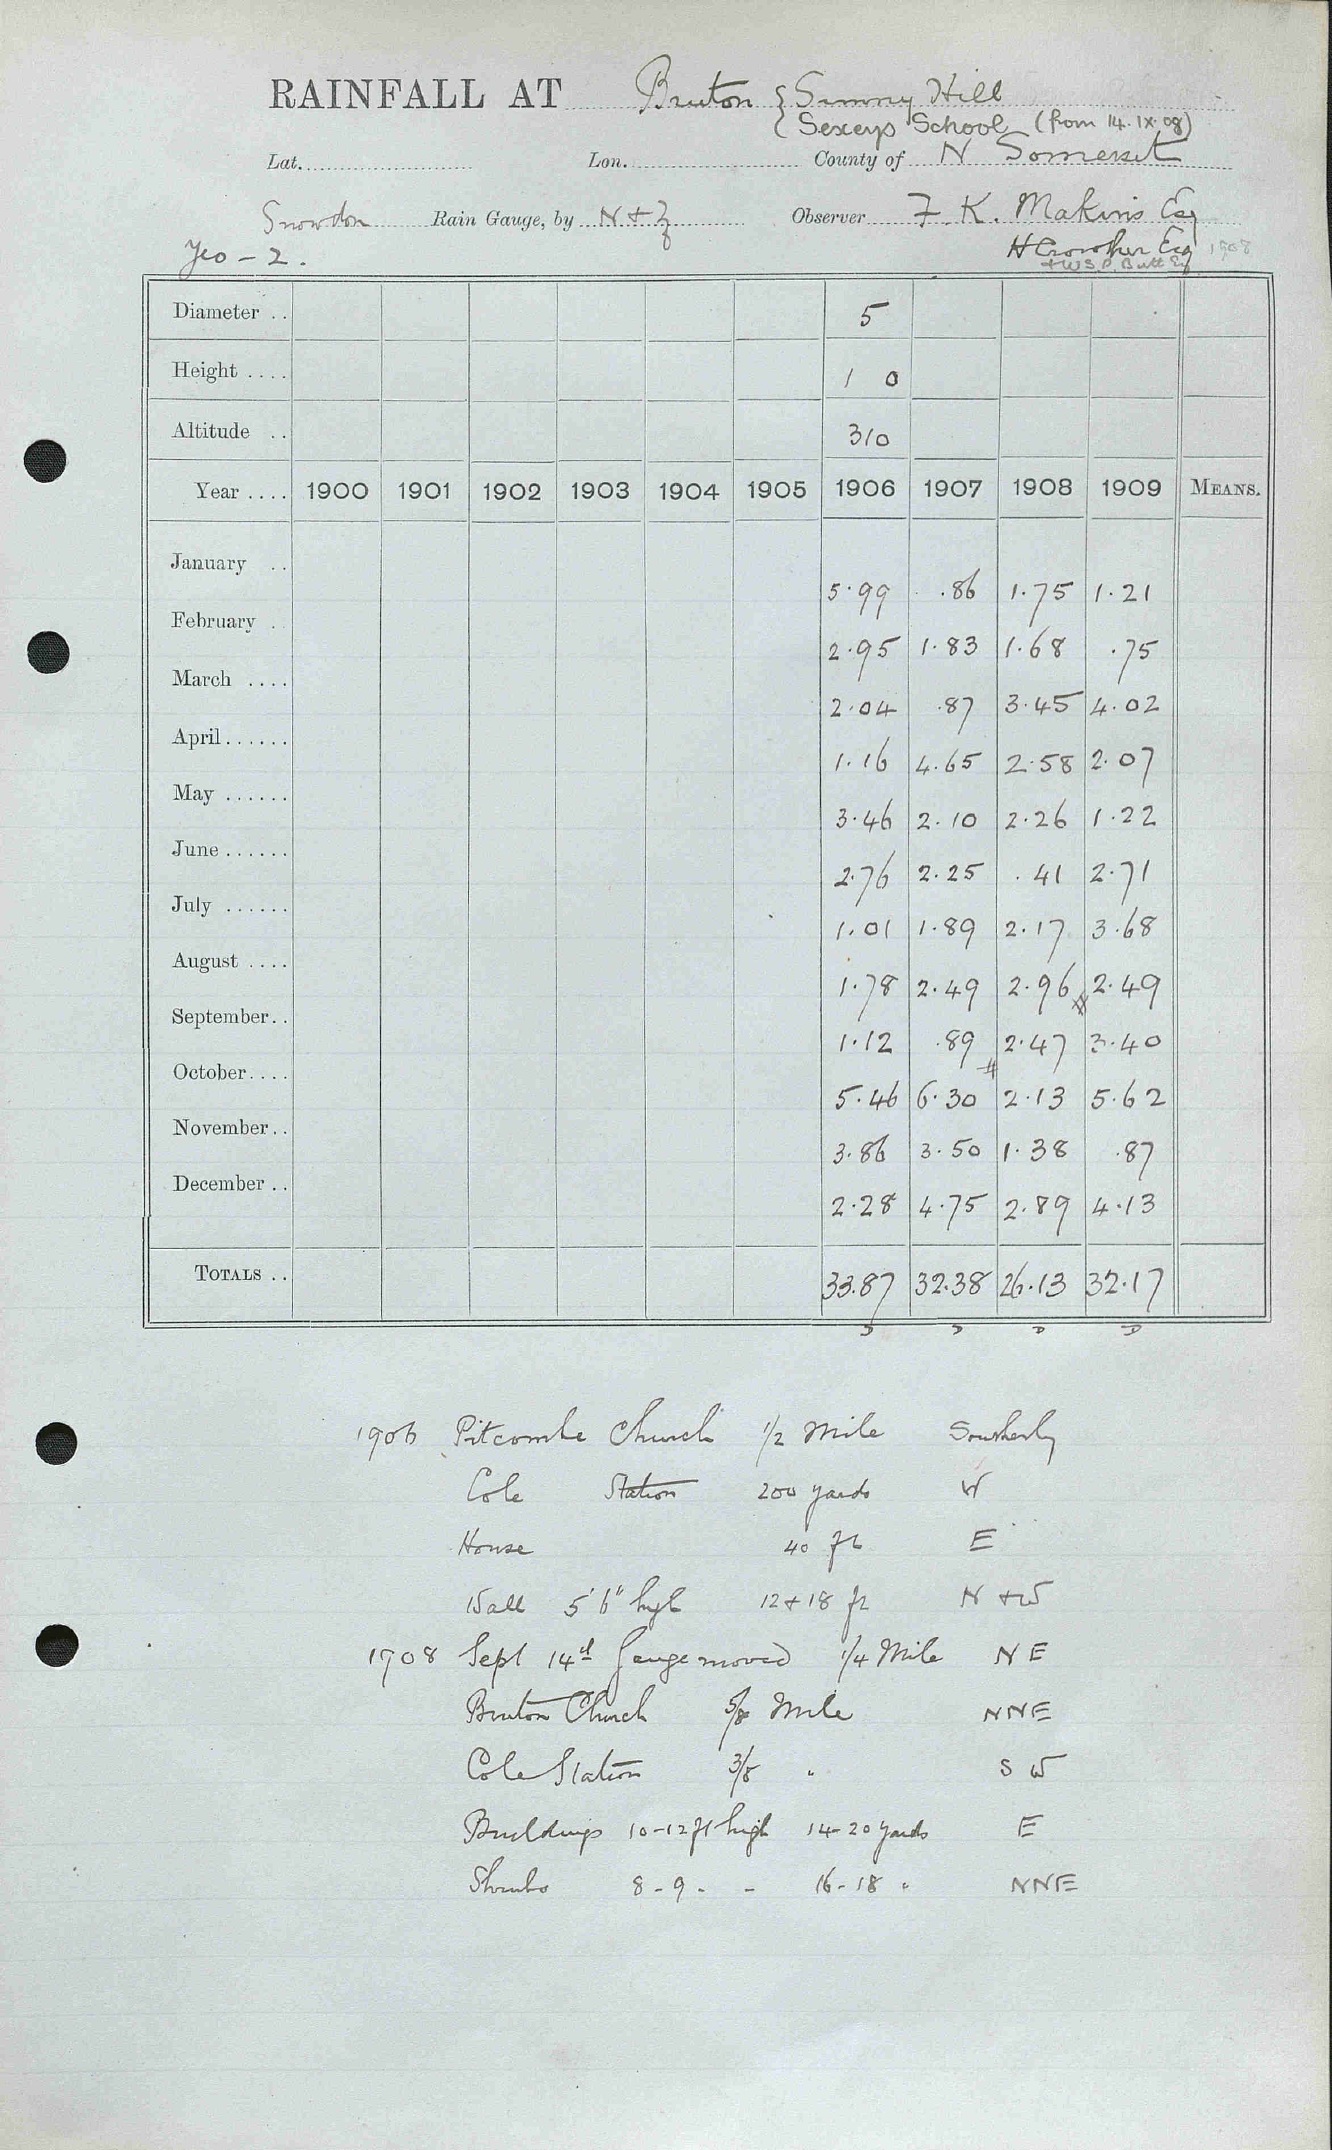 RAINFALL AT Bruton { Sunny Hill
{ Sexeys School (from 14.IX.08)
Lat. Lon. County of N Somerset
Snowdon Rain Gauge, by N & Z Observer F. K. Makins Esq
Yeo - 2. H Crowther Esq 1908
+ W S P. Butt Esq
Diameter .. 5
Height .... 1 0
Altitude .. 310
Year .... 1900 1901 1902 1903 1904 1905 1906 1907 1908 1909 MEANS.
January .. 5.99 .86 1.75 1.21
February . 2.95 1.83 1.68 .75
March .... 2.04 .87 3.45 4.02
April...... 1.16 4.65 2.58 2.07
May ...... 3.46 2.10 2.26 1.22
June ...... 2.76 2.25 .41 2.71
July ...... 1.01 1.89 2.17 3.68
August .... 1.78 2.49 2.96 2.49
September.. 1.12 .89 2.47 3.40
October.... 5.46 6.30 2.13 5.62
November.. 3.86 3.50 1.38 .87
December .. 2.28 4.75 2.89 4.13
TOTALS .. 33.87 32.38 26.13 32.17
1906 Pitcombe Church 1/2 Mile Southerly
Cole Station 200 yards W
House 40 ft E
Wall 5'6" high 12 & 18 ft N & W
1908 Sept 14th Gauge moved 1/4 Mile NE
Bruton Church 5/8 Mile NNE
Cole Station 3/8 " SW
Buildings 10-12 ft high 14-20 yards E
Shrubs 8-9 " " 16-18 " NNE